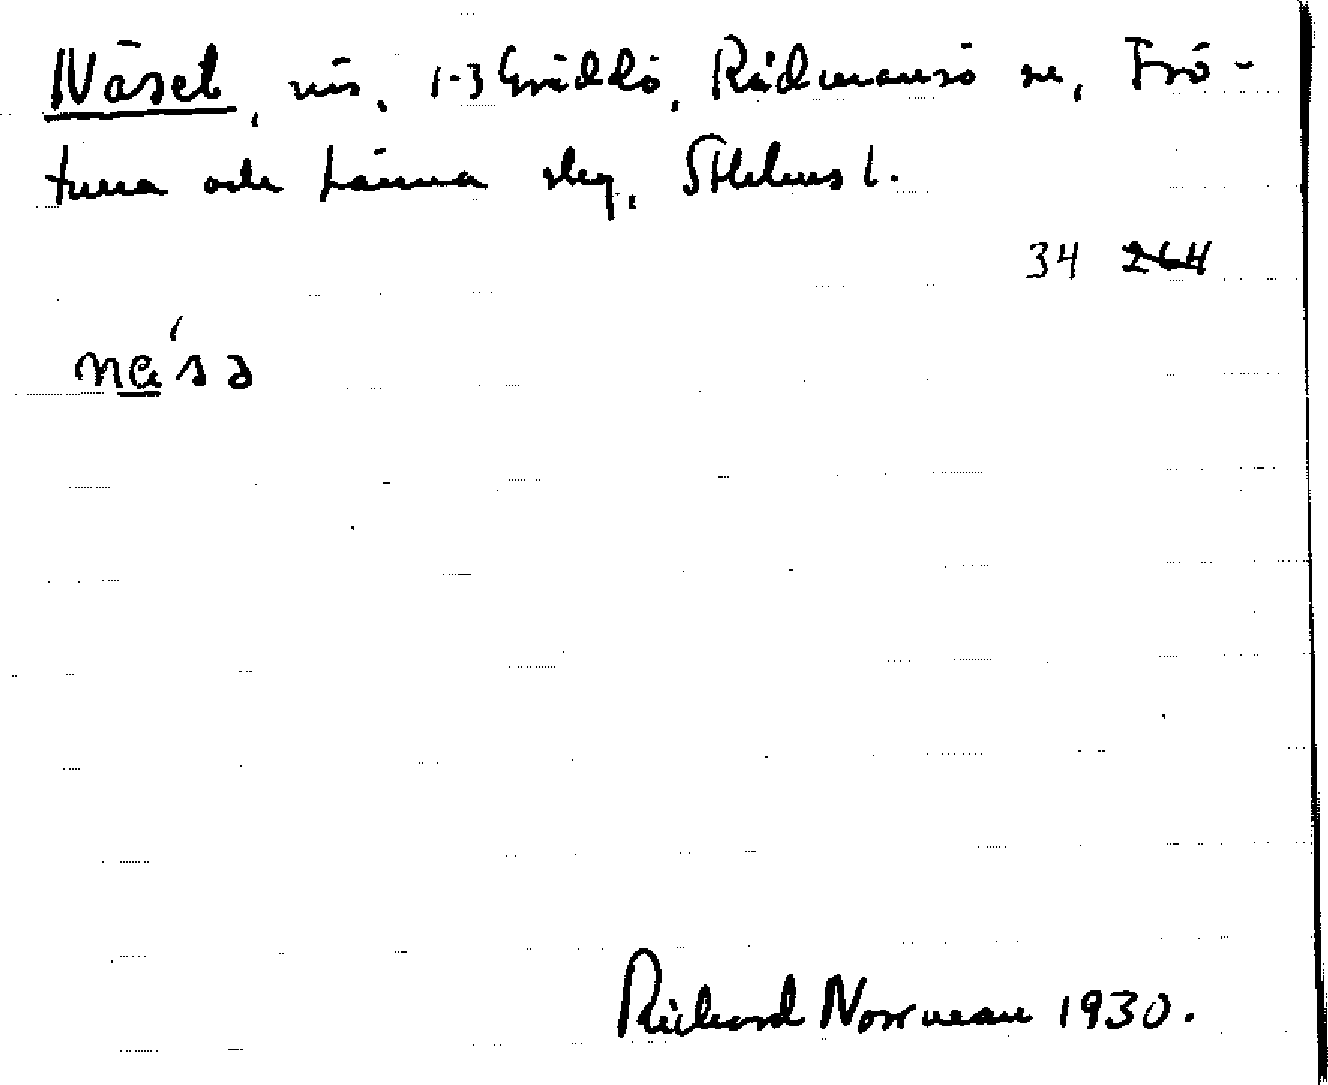 Näset, näs, 1-3 Gräddö, Rådmansö sn, Frö-
tuna och Länna skg, Sthlms l.
34 264
næ´sə
Rickard Norrman 1930.